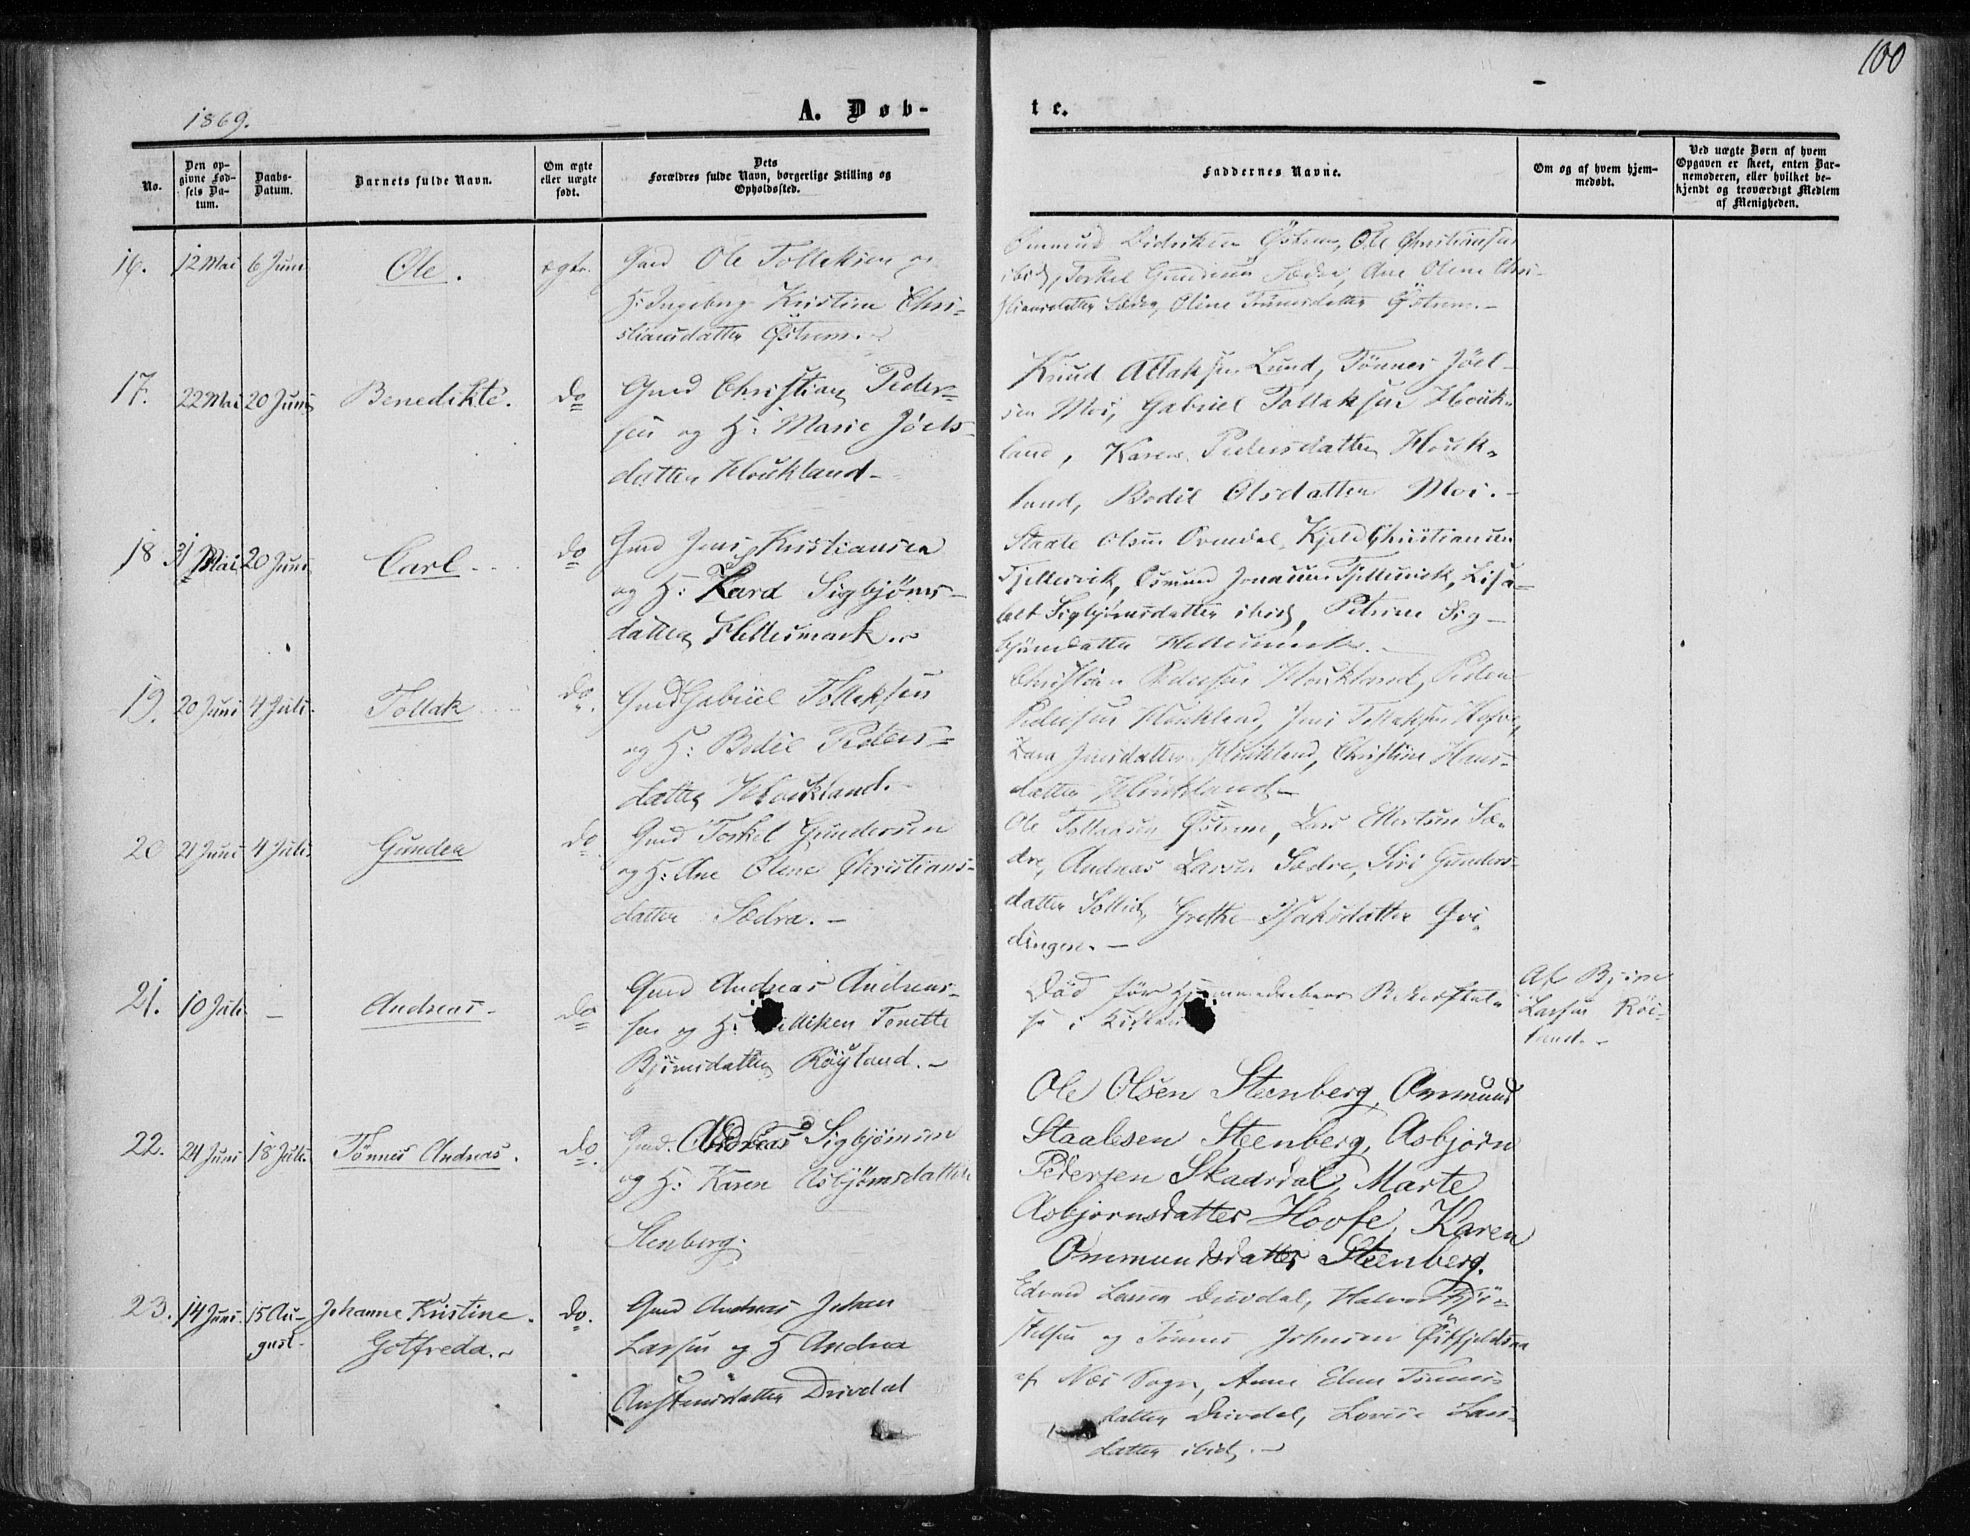 100
1869.
A. Døb-
te.
No.
Den op-
givne Fød-
sels Da-
tum.
Daabs-
Datum.
Barnets fulde Navn.
Om ægte
eller uægte
født.
Dets
Forældres fulde Navn, borgerlige Stilling og
Opholdssted.
Faddernes Navne.
Om og af hvem hjem-
medøbt.
Ved uægte Børn af hvem
Opgaven er skeet, enten Bar-
nemoderen, eller hvilket be-
kjendt og troværdigt Medlem
af Menigheden.
16. 12 Mai 6 Juni Ole. ægte.
Gmd Ole Tollaksen og
H: Ingeborg Kristine Chri-
stiansdatter Østrem.
Ommund Didriksen Østrem, Ole Christiansen
ibid, Torkel Gundersen Sædre, Ane Olene Chri-
stiansdatter Sædre, Oline Tønnesdatter Østrem.-
17. 22 Mai 20 Juni Benedikte. do
Gmd Christian Peder-
sen og H: Marie Jöels-
datter Houkland-
Knud Attaksen Lund, Tønnes Jöel-
sen Moi, Gabriel Tollaksen Houk-
land, Karen Pedersdatter Houk-
land, Bodil Olsdatter Moi.-
18 31 Mai 20 Juni Carl. do
Gmd Jens Kristiansen
og H: Kard Sigbjörns-
datter Hettesmark.
Staale Olsen Ovendal, Kjeld Christiansen
Fjellesvik, Osmund Jonassen Fjellesvik, Lisa-
bet Sigbjörnsdatter ibid, Petrine Sig-
björnsdatter Hettesmark.-
19. 20 Juni 4 Juli. Tollak do.
Gmd Gabriel Tollaksen
og H: Bodil Peders-
datter Houkland.-
Christian Pedersen Houkland, Peder
Pedersen Houkland, Jens Tollaksen
Jensdatter Houkland, Christine Hans-
datter Houkland-
20 21 Juni 4 Juli. Gunder do.
Gmd Torkel Gundersen
og H: Ane Olene Christians-
datter Sædre.-
Ole Tollaksen Østrem, Lars Ellertsen Sæ-
dre, Andreas Larsen Sædre, Siri Gunders-
datter Sollid, Grethe Isaksdatter Qvi-
dingen.-
21. 10 Juli - Andreas- do
Gmd Andreas Andreas-
sen og H: Tonette
Bjørnsdatter Röyland.-
Död før Hjemmedaabens Bekræftel-
se i Kirken
Af Björn
Larsen Röi-
land.-
22. 24 Juni 18 Juli. Tønnes Andreas. do.
Gmd. Andreas Sigbjörnsen
og H: Karen Asbjörnsdatter
Stenberg.
Ole Olsen Steenberg, Ommund
Staalesen Steenberg, Asbjörn
Pedersen Skadsdal, Marte
Asbjørnsdatter Hovfe, Karen
Ommundsdatter Steenberg.
23. 14 Juni 15 Au-
gust. Johanne Kristine
Gotfreda. do.
Gmd Andreas Johan
Larsen og H Andrea
Austensdatter Drivdal
Edvard Larsen Drivdal, Halvor
og Tønnes Johnsen
af Næs Sogn, Anne Elene Tønnes-
datter Drivdal, Lovise Lars-
datter ibid.-